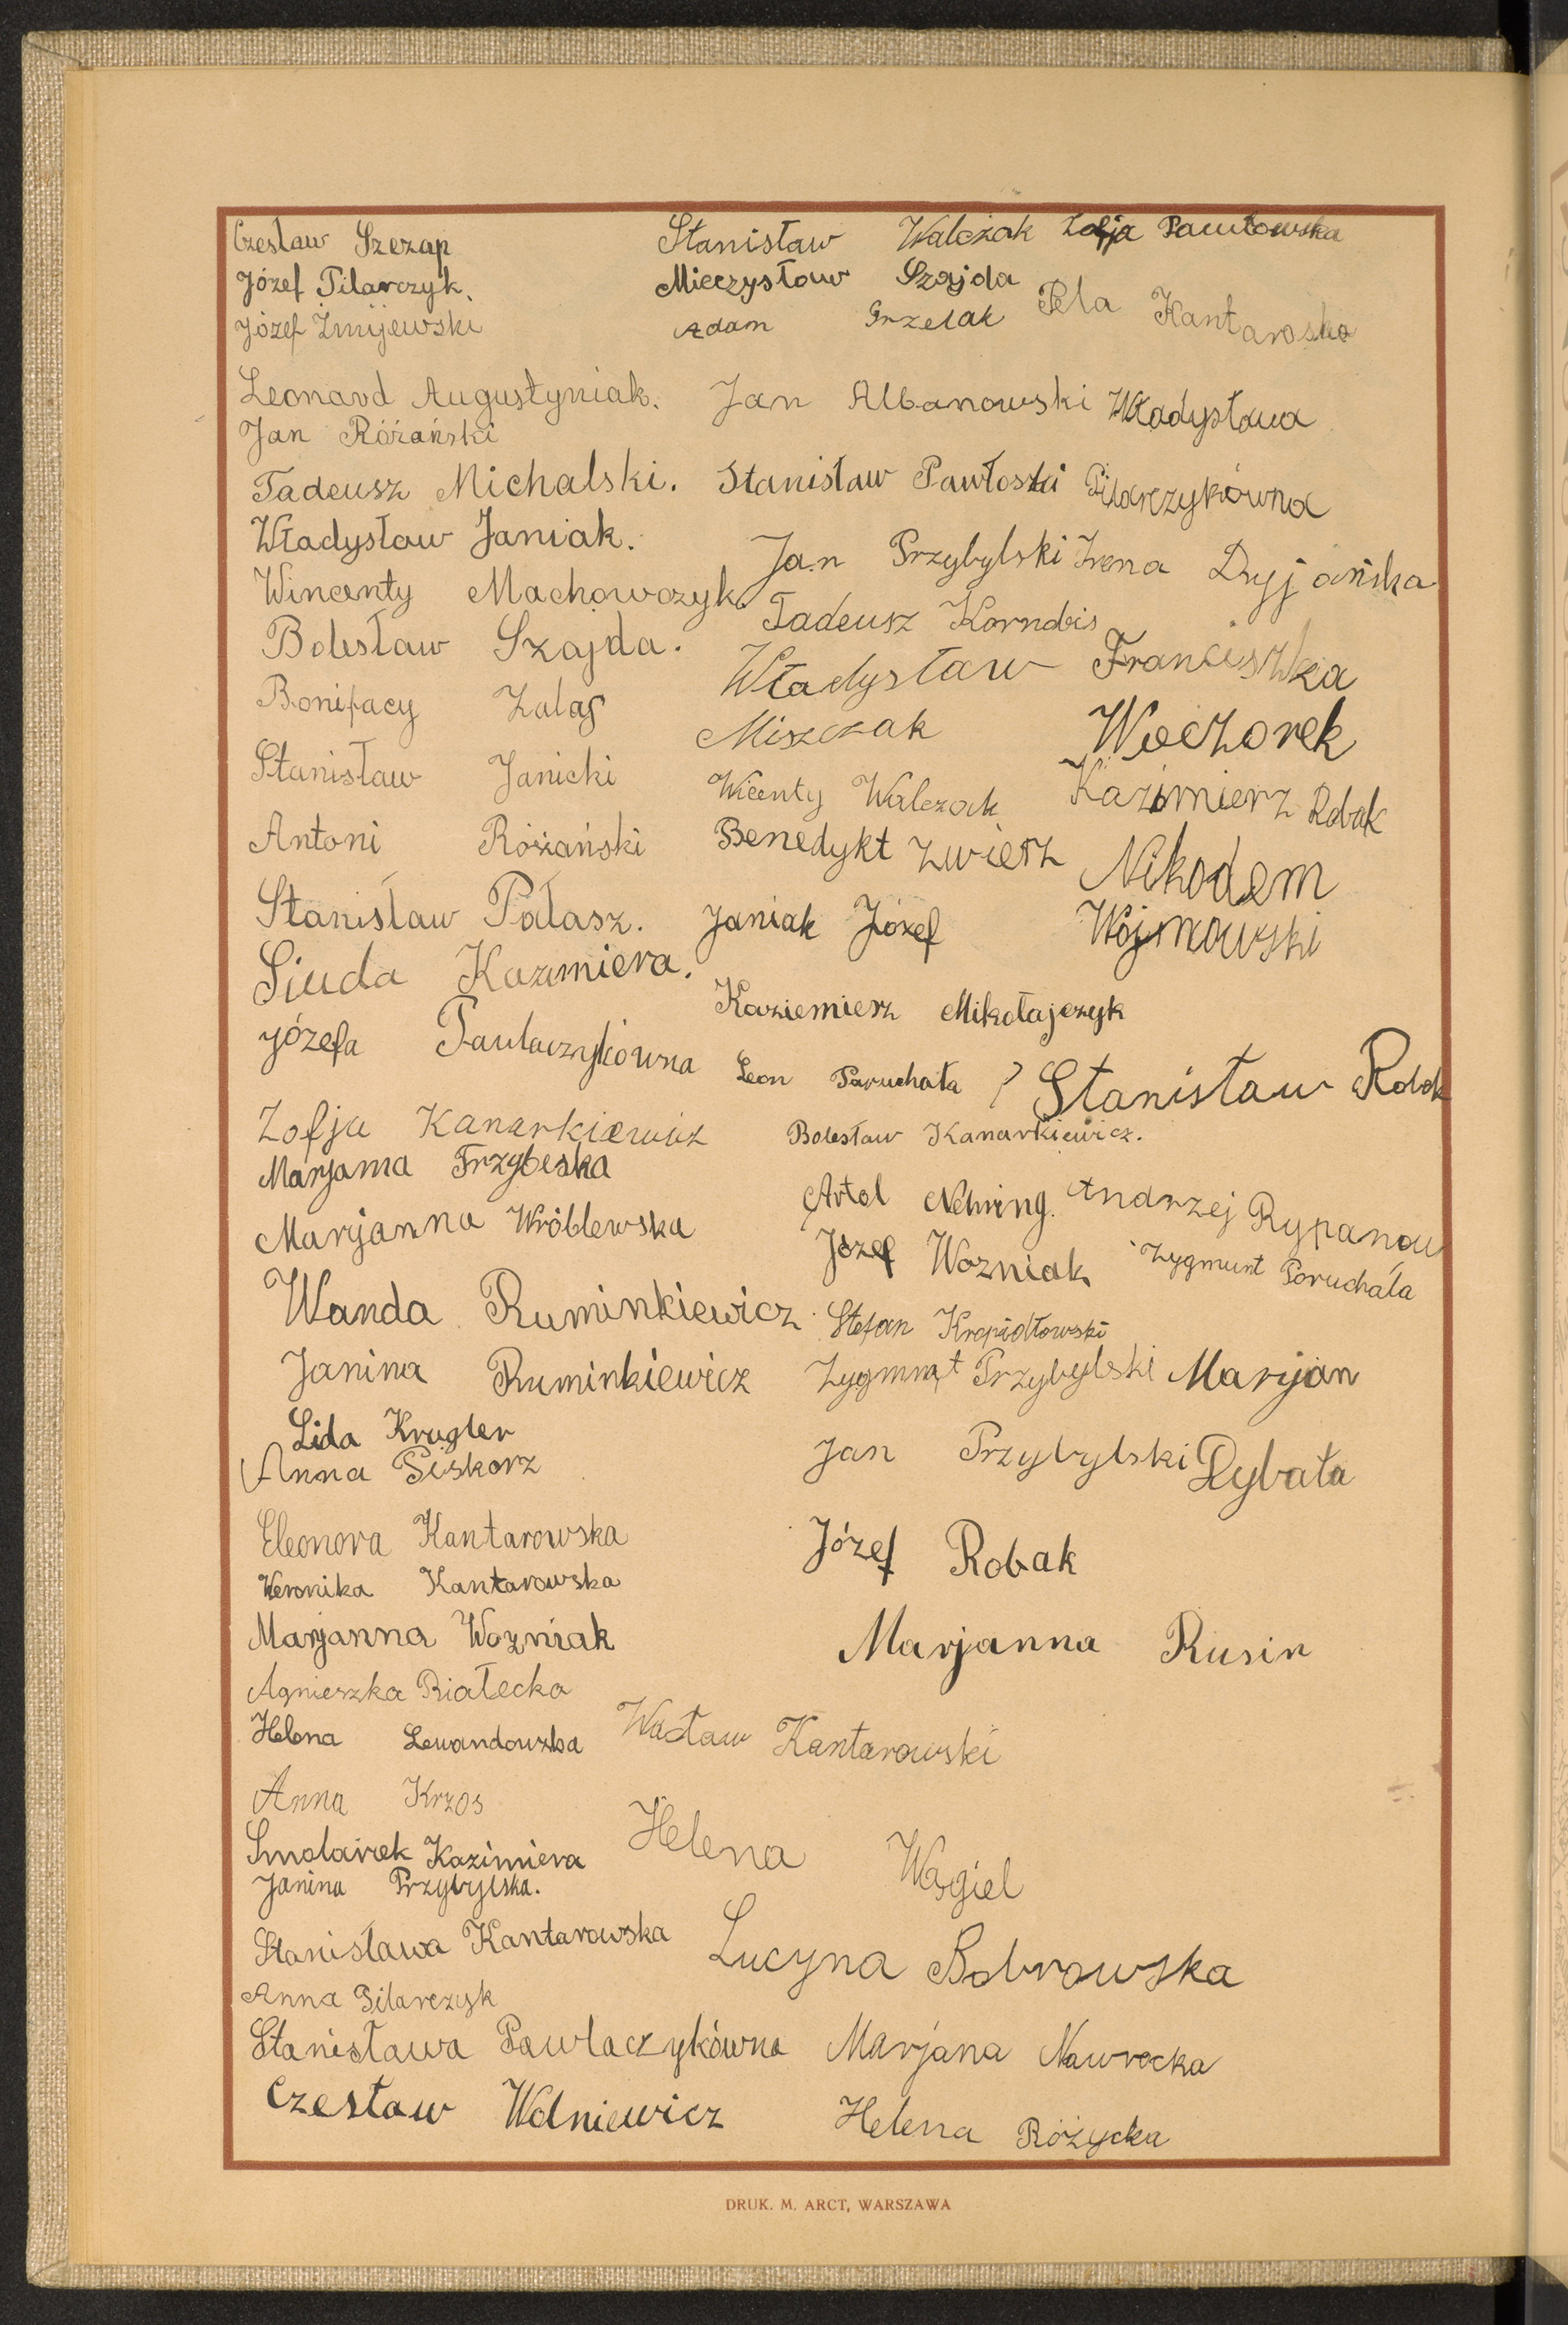 Czesław Szczap
Józef Pilarczyk.
Józef Żmijewski
Leonard Augustyniak.
Jan Różański
Tadeusz Michalski.
Władysław Janiak.
Wincenty Machowczyk.
Bolesław Szajda.
Bonifacy Zalas
Stanisław Janicki
Antoni Różański
Stanisław Pałasz.
Siuda Kazmiera.
Józefa Pawlaczykówna
Zofja Kanarkiewicz
Marjama Trzybeska
Marjanna Wróblewska
Wanda Ruminkiewicz
Janina Ruminkiewicz
Lida Krugler
Anna Piskorz
Eleonora Kantarowska
Weronika Kantarowska
Marjanna Wozniak
Agnieszka Białecka
Helena Lewandowska
Anna Krzos
Smolarek Kazimiera
Janina Przybylska.
Stanisława Kantarowska
Anna Pilarczyk
Stanisława Pawlaczykówna
Czesław Wolniewicz
Stanisław Walczak
Mieczysław Szajda
Adam Grzelak
Jan Albanowski
Stanisław Pawłoski
Jan Przybylski
Tadeusz
Władysław
Miszczak
Wicenty Walczak
Benedykt Zwierz
Janiak Józef
Kaziemierz Mikołajczyk
Leon Paruchała ?
Bolesław Kanarkiewicz.
Artel Nehring.
Józef Wozniak
Stefan Krapidłowski
Zygmnt Przybylski
Jan Przybylski
Józef Robak
Marjanna Rusin
Wacław Kantarowski
Helena Wągiel
Lucyna Bobrowska
Marjana Nawrocka
Helena Różycka
Zofja Pawłowska
Pela Kantaroska
Władysława
Pilarczykówna
Irena Dyjańska
Franciszka
Wieczorek
Kazimierz Robak
Nikodem
Wojnowski
Stanisław Robak
Andrzej Rypanow
Zygmunt Poruchała
Maryjan
Dybała
DRUK. M. ARCT, WARSZAWA